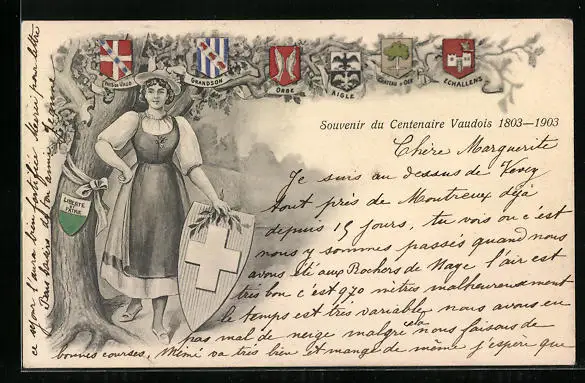 PAYS DE VAUD
GRANDSON
ORBE
AIGLE
CHATEAU D'OEX
ECHALLENS
Souvenir du Centenaire Vaudois 1803—1903
LIBERTÉ
ET
PATRIE
Chère Marguerite
Je suis au dessus de Vevey
tout près de Montreux déjà
depuis 15 jours, tu vois où c'est
nous y sommes passés quand nous
avons été aux Rochers de Naye l'air est
très bon c'est 970 mètres malheureusement
le temps est très variable, nous avons eu
pas mal de neige malgré cela nous faisons de
bonnes courses, Mimé va très bien et mange de même j'espère que
ce séjour l'aura bien fortifiée Merci pour lettre
Bons baisers de ton amie